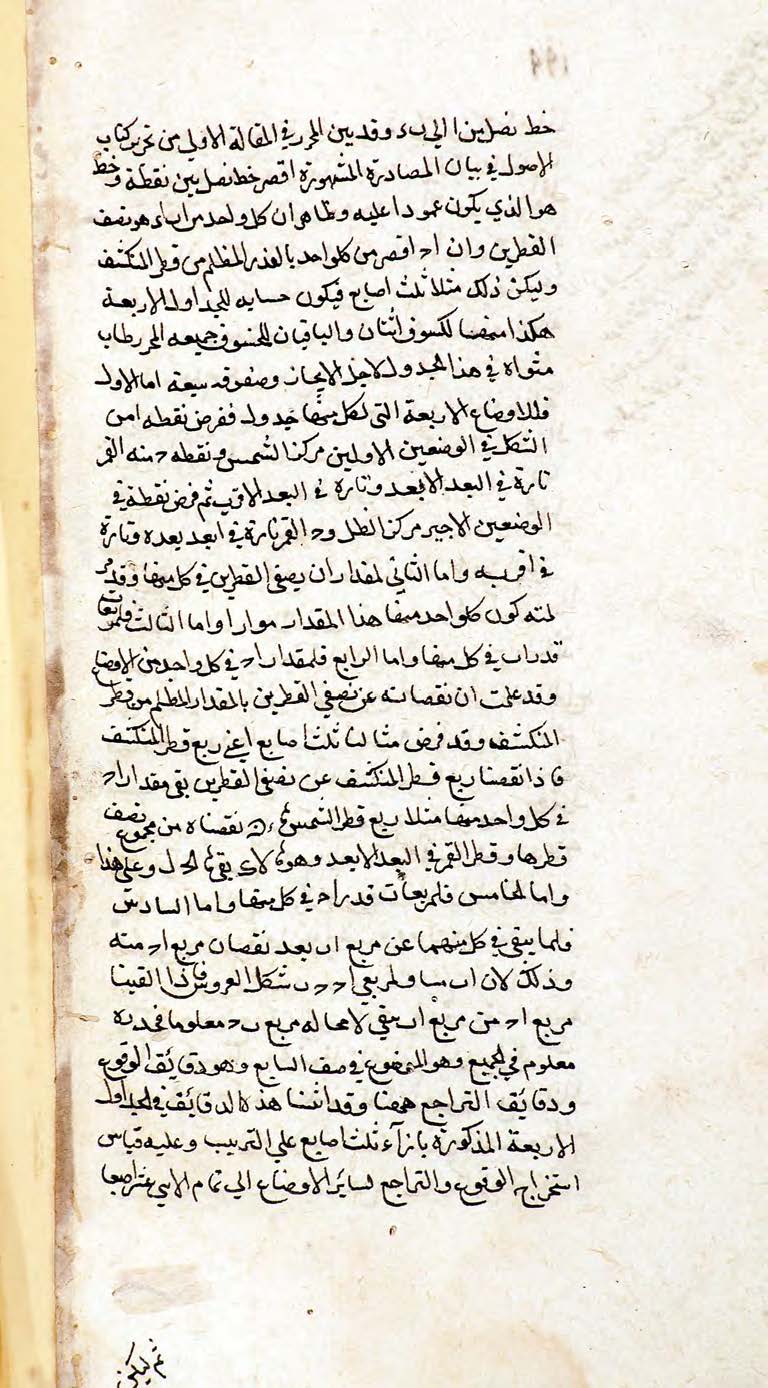 ١٩٩
خط نصل من ا الي ٮء وقد بين المحرر في المقالة الاولي من تحرير كتاب
الاصول في بيان المصادرة المشهورة اقصر خط نصل بين نقطة وخط
هو الذي يكون عمودا عليه وظاهر ان كل واحد من اب اء هو نصف
القطرين وان اح اقصر من كل واحد بالقدر المظلم من قطر المنكسف
وليكن ذلك مثلا ثلث اصابع فيكون حسابه للجداول الاربعة
هكذا منها لكسوف اثنان والباقيان للخسوف جميعه المحرر طاب
مثواه في هذا الجدول لاجل الايجاز وصفوفه سبعة اما الاول
فللاوضاع الاربعة التي لكل منها جدول ففرض نقطه ا من
الشكل في الوضعين الاولين مركز الشمس ونقطه ح منه القمر
تارة في البعد الابعد وتارة في البعد الاقرب ثم فرض نقطة في
الوضعين الاخير مركز الظل وح القمر تارة في ابعد بعده وتارة
في اقربه واما الثاني لمقدار ان يصفي القطرين في كل منها وقد مر
لمته كون كل واحد منها هذا المقدار موارا واما الثالث فلمربعات
قدر اب في كل منها واما الرابع فلمقدار اح في كل واحد من الاوضاع
وقد علمت ان نقصانه عن نصفي القطرين بالمقدار المظلم من قطر
المنكسف وقد فرض مثالنا ثلث اصابع اعني ربع قطر المنكسف
فاذا نقصنا ربع قطر المنكسف عن نصفي القطرين بقي مقدار اح
في كل واحد منها مثلا ربع قطر الشمس نقصناه من مجموع نصف
قطرها وقطر القمر في البعد الابعد وهو يبقي وعلي هذا
واما الخامس فلمربعات قدر اح في كل منها واما السادس
فلما يبقي في كل منهما عن مربع اب بعد نقصان مربع اح منه
وذلك لان اب مساو لمربعي اح ح ب بشكل العروس فاذا القينا
مربع اح من مربع اب بقي لا محاله مربع ب ح معلوما فجذره
معلوم في الجميع وهو الموضوع في صف السابع وهو دقائق الوقوع
ودقائق التراجع ههنا وقد اثبتنا هذه الدقائق في الجداول
الاربعة المذكورة بازآء ثلث اصابع علي الترتيب وعليه قياس
استخراج الوقوع والتراجع لسائر الاوضاع الي تمام الاثني عشر اصبعا
ثم ليكن